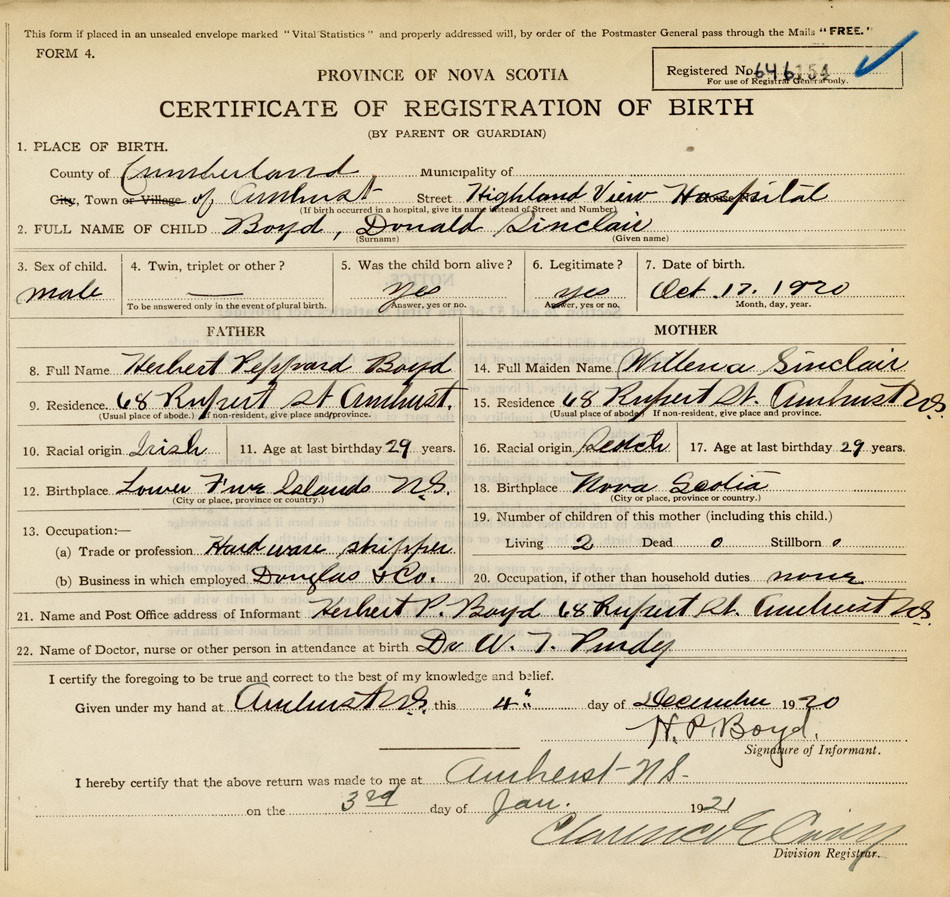 This form if placed in an unsealed envelope marked "Vital Statistics" and properly addressed will, by order of the Postmaster General pass through the Mails "FREE."
FORM 4.
Registered No. 646154
For use of Registrar General only.
PROVINCE OF NOVA SCOTIA
CERTIFICATE OF REGISTRATION OF BIRTH
(BY PARENT OR GUARDIAN)
1. PLACE OF BIRTH.
County of Cumberland Municipality of
City, Town or Village of Amherst Street Highland View Hospital
(If birth occurred in a hospital, give its name instead of Street and Number)
2. FULL NAME OF CHILD Boyd, Donald Sinclair
(Surname) (Given name)
3. Sex of child. 4. Twin, triplet or other? 5. Was the child born alive? 6. Legitimate? 7. Date of birth.
male — yes yes Oct. 17. 1920
To be answered only in the event of plural birth. Answer, yes or no. Answer, yes or no. Month, day, year.
FATHER
8. Full Name Herbert Peppard Boyd
9. Residence. 68 Rupert St Amherst.
(Usual place of abode.) If non-resident, give place and province.
10. Racial origin Irish 11. Age at last birthday 29 years.
12. Birthplace Lower Five Islands N.S.
(City or place, province or country.)
13. Occupation:—
(a) Trade or profession Hardware shipper
(b) Business in which employed Douglas & Co.
MOTHER
14. Full Maiden Name Willena Sinclair
15. Residence 68 Rupert St. Amherst N.S.
(Usual place of abode) If non-resident, give place and province.
16. Racial origin Scotch 17. Age at last birthday 29 years.
18. Birthplace Nova Scotia
(City or place, province or country.)
19. Number of children of this mother (including this child.)
Living 2 Dead 0 Stillborn 0
20. Occupation, if other than household duties none
21. Name and Post Office address of Informant Herbert P. Boyd 68 Rupert St. Amherst N.S.
22. Name of Doctor, nurse or other person in attendance at birth Dr W. T. Purdy
I certify the foregoing to be true and correct to the best of my knowledge and belief.
Given under my hand at Amherst N.S. this 4" day of December 1920
H. P. Boyd.
Signature of Informant.
I hereby certify that the above return was made to me at Amherst N.S.
on the 3rd day of Jan. 1921
Clarence E
Division Registrar.